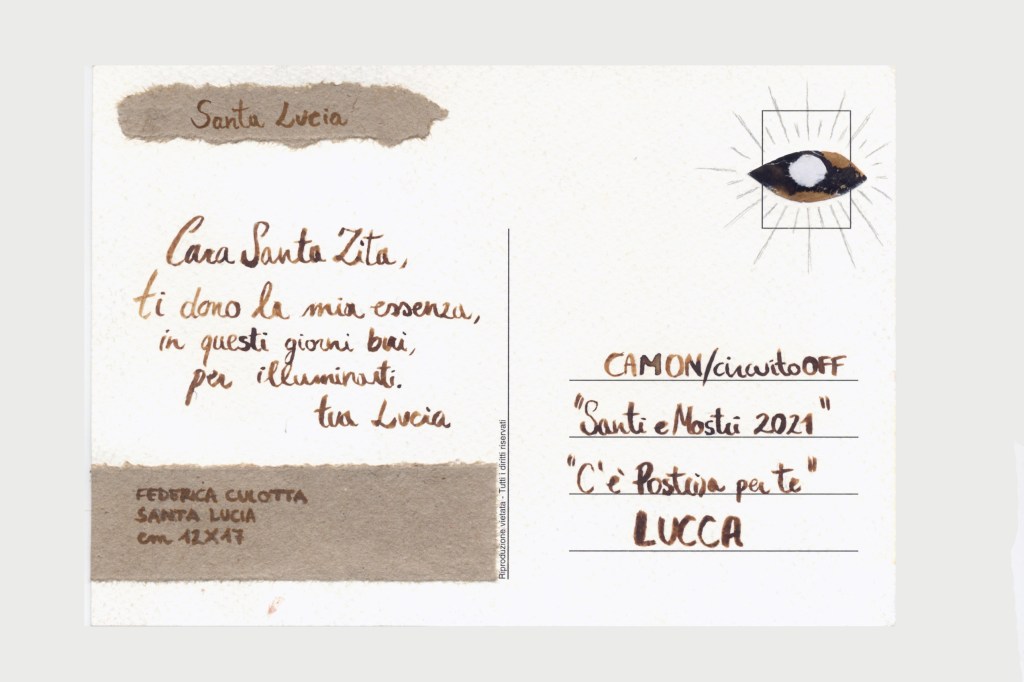 Santa Lucia
Cara Santa Zita,
ti dono la mia essenza,
in questi giorni bui,
per illuminarti.
tua Lucia
FEDERICA CULOTTA
SANTA LUCIA
cm 12X17
Riproduzione vietata - Tutti i diritti riservati
CAMON/circuitoOFF
"Santi e Mostri 2021"
"C'è Post@ per te"
LUCCA